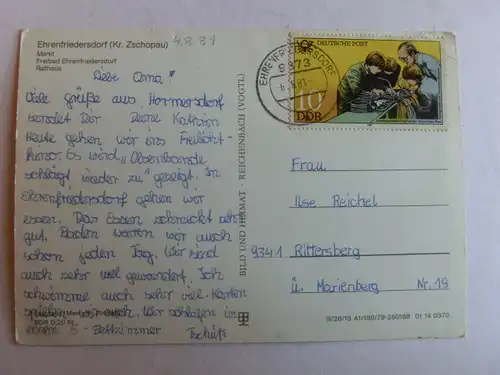 Ehrenfriedersdorf (Kr. Zschopau)
Markt
Freibad Ehrenfriedersdorf
Rathaus
4.8.81
Liebe Oma!
Viele Grüße aus Hormersdorf
sendet Dir Deine Kathrin
Heute gehen wir ins Freilicht-
kino. Es wird „Olsenbande
schlägt wieder zu" gezeigt. In
Ehrenfriedersdorf gehen wir
essen. Das Essen schmeckt sehr
gut. Baden waren wir auch
schon jeden Tag. Wir sind
auch sehr viel gewandert. Ich
schwimme auch sehr viel. Karten
spielen wir auch. Wir schlafen in
einem 5-Bettzimmer
Tschüß
EVP M 0,20
BILD UND HEIMAT · REICHENBACH (VOGTL)
EHRENFRIEDERSDORF
9373
DEUTSCHE POST
10
DDR
Frau
Ilse Reichel
9341 Rittersberg
ü. Marienberg Nr. 19
III/26/13 A1/188/79-260188 01 14 0370